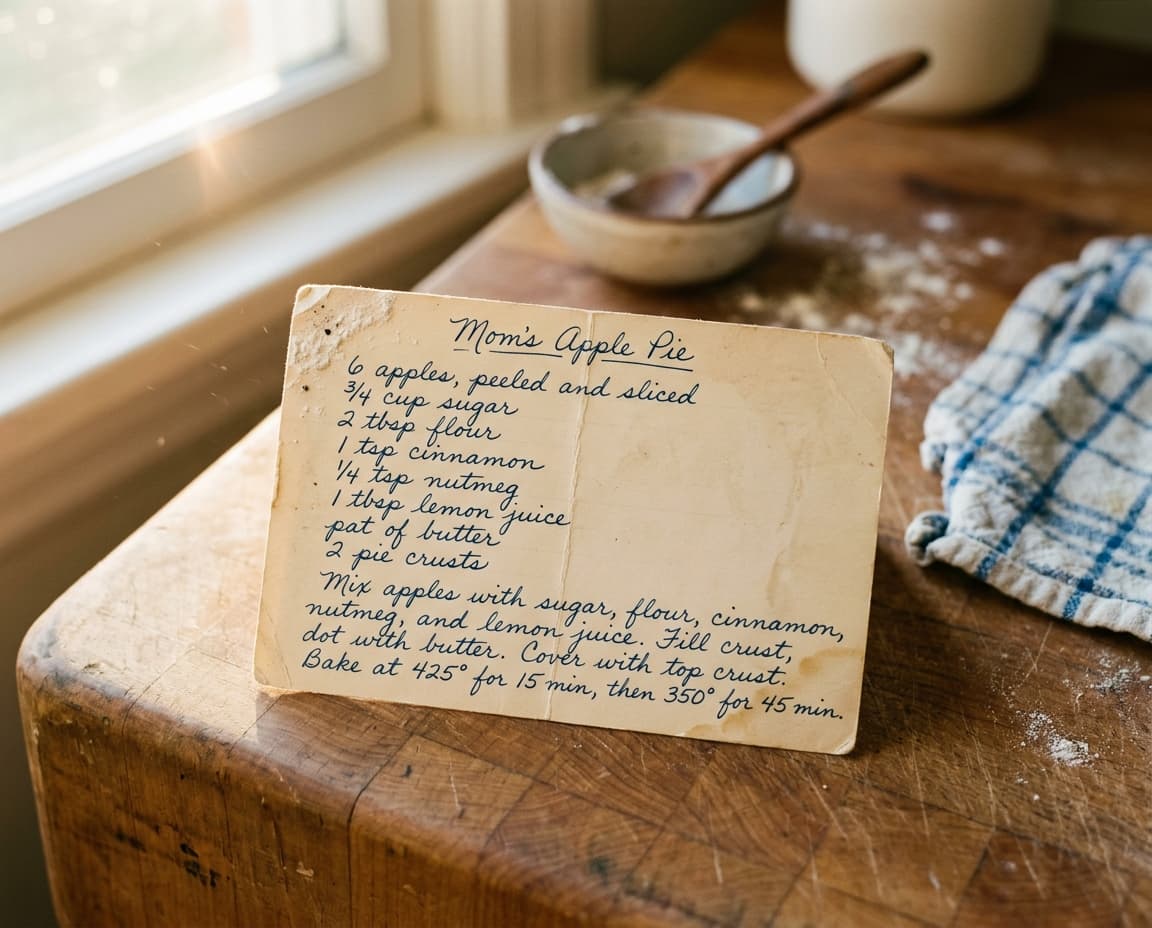 Mom's Apple Pie
6 apples, peeled and sliced
3/4 cup sugar
2 tbsp flour
1 tsp cinnamon
1/4 tsp nutmeg
1 tbsp lemon juice
pat of butter
2 pie crusts
Mix apples with sugar, flour, cinnamon,
nutmeg, and lemon juice. Fill crust,
dot with butter. Cover with top crust.
Bake at 425° for 15 min, then 350° for 45 min.